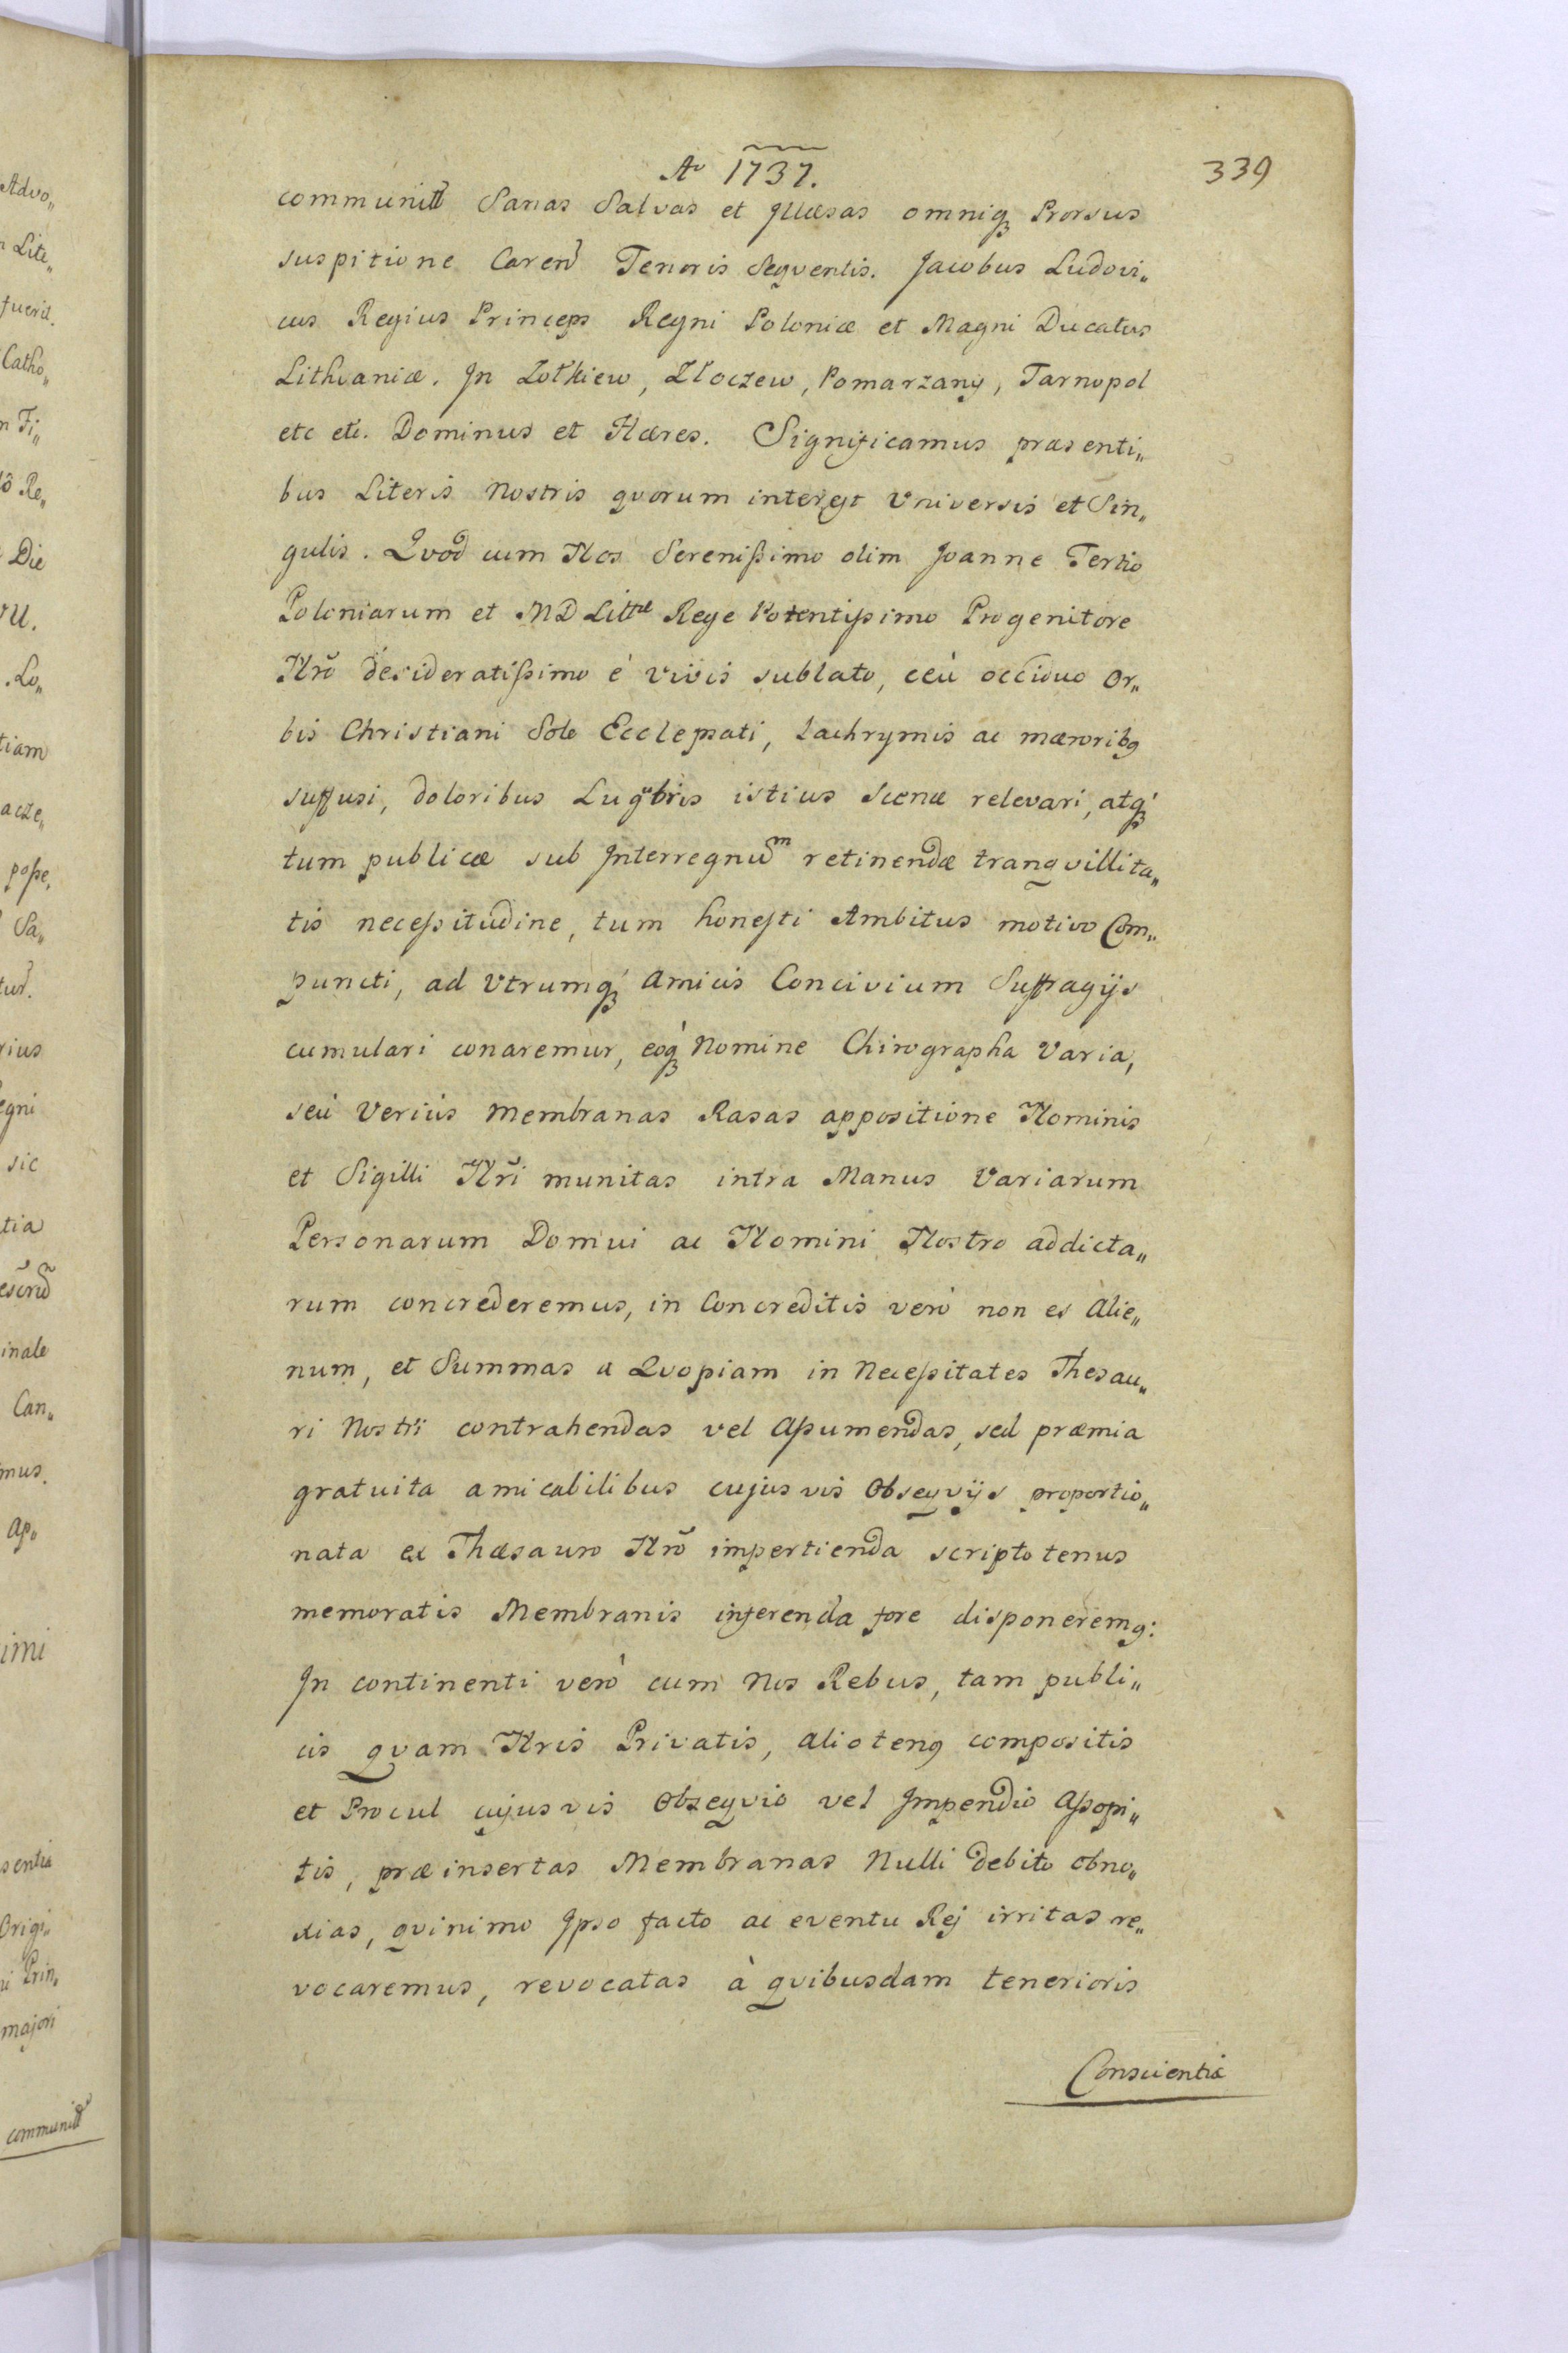 Aº 1737.
339
communit̃ Sanas Salvas et Illæsas omniqꝫ Prorsus
suspitione Caren̄ Tenoris Seqventis. Jacobus Ludovi„
cus Regius Princeps Regni Poloniæ et Magni Ducatus
Lithvaniæ. In Żołkiew, Złoczew, Pomarzany, Tarnopol
etc etc. Dominus et Hæres. Significamus præsenti„
bus Literis Nostris qvorum interest Vniversis et Sin„
gulis. Qvod cum Nos Serenißimo olim Joanne Tertio
Poloniarum et MD Littæ Rege Potentißimo Progenitore
Nrõ desideratißimo è vivis sublato, ceù occiduo Or„
bis Christiani Sole Ecclepsati, Lachrymis ac mæroribꝯ
suffusi, doloribus Lugubris istius Scenæ relevari, atqꝫ
tum publicæ sub Interregnum retinendæ tranqvillita„
tis neceßitudine, tum honesti Ambitus motivo Com„
puncti, ad Vtrumqꝫ Amicis Concivium Suffragijs
cumulari conaremur, eoqꝫ Nomine Chirographa Varia,
seù Veriùs Membranas Rasas appositione Nominis
et Sigilli Nr̃i munitas intra Manus Variarum
Personarum Domui ac Nomini Nostro addicta„
rum concrederemus, in Concreditis verò non es Alie„
num, et Summas a Qvopiam in Neceßitates Thesau„
ri Nostri contrahendas vel Aßumendas, sed præmia
gratuita amicabilibus cujusvis Obseqvijs proportio„
nata ex Thæsauro Nrõ impertienda scripto tenus
memoratis Membranis inserenda fore disponeremꝯ:
In continenti verò cum Nos Rebus, tam publi„
cis qvam Nris Privatis, Aliotenꝯ compositis
et Procul cujusvis Obseqvio vel Impendio Aßopi„
tis, præinsertas Membranas Nulli debito obno„
xias, qvinimo Ipso facto ac eventu Rej irritas re„
vocaremus, revocatas à qvibusdam tenerioris
Conscientiæ
Advo„
Lite„
fuerit.
Catho„
Fi„
Re„
Die
Lo„
tiam
acze„
poße,
Sa„
rius
egni
sic
tia
inale
Can„
mus.
Ap„
imi
sentia
Origi„
Prin„
majori
communit̃